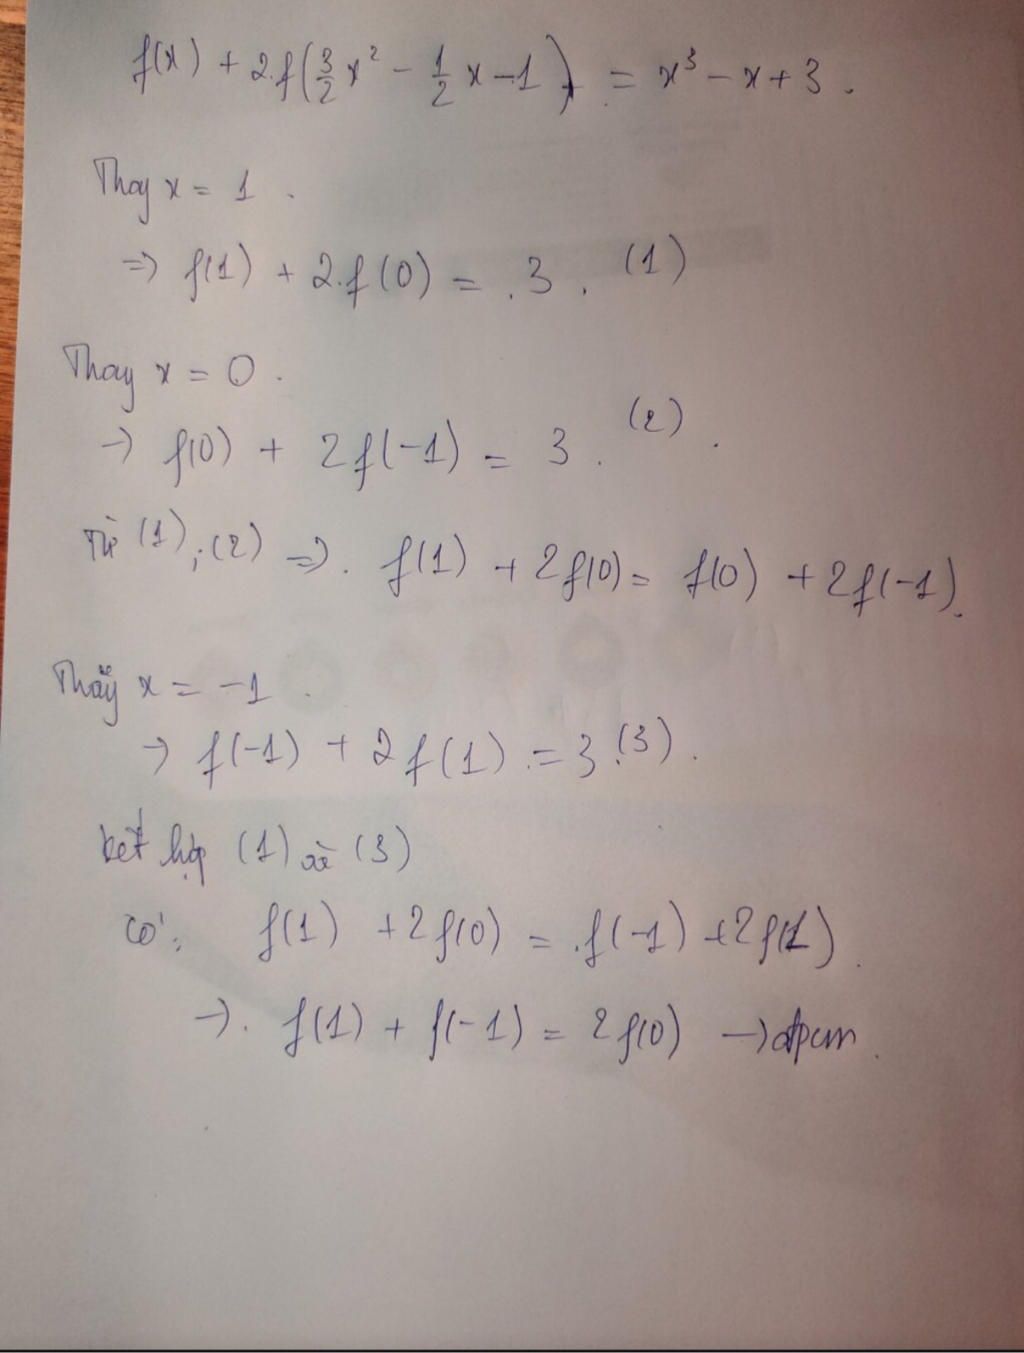 f(x) + 2.f(3/2 x² - 1/2 x - 1) = x³ - x + 3.
Thay x = 1.
=> f(1) + 2.f(0) = 3. (1)
Thay x = 0.
→ f(0) + 2f(-1) = 3. (2).
Từ (1), (2) =>. f(1) + 2f(0) = f(0) + 2f(-1).
Thấy x = -1.
→ f(-1) + 2f(1) = 3 (3).
kết hợp (1) và (3)
có: f(1) + 2f(0) = f(-1) + 2f(1).
→. f(1) + f(-1) = 2f(0) → đpcm.